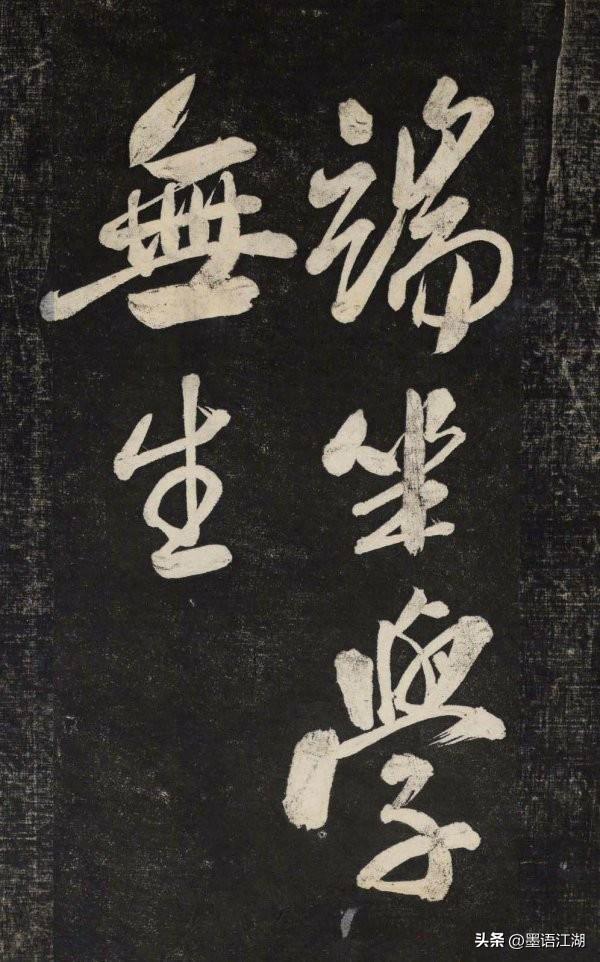 端坐學
無生
头条 @墨语江湖